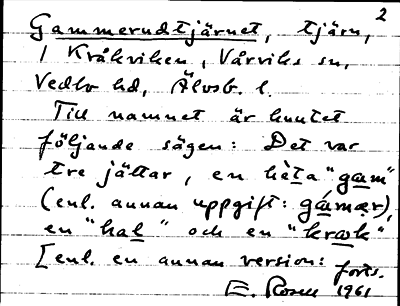 2
Gammerudtjärnet, tjärn,
i Kråkviken, Vårviks sn,
Vedbo hd, Älvsb. l.
Till namnet är knutet
följande sägen: Det var
tre jättar, en hèta "gam"
(enl. annan uppgift: gámær),
en "hal" och en "kravk".
[enl. en annan version:
forts.
E. Rosen 1961